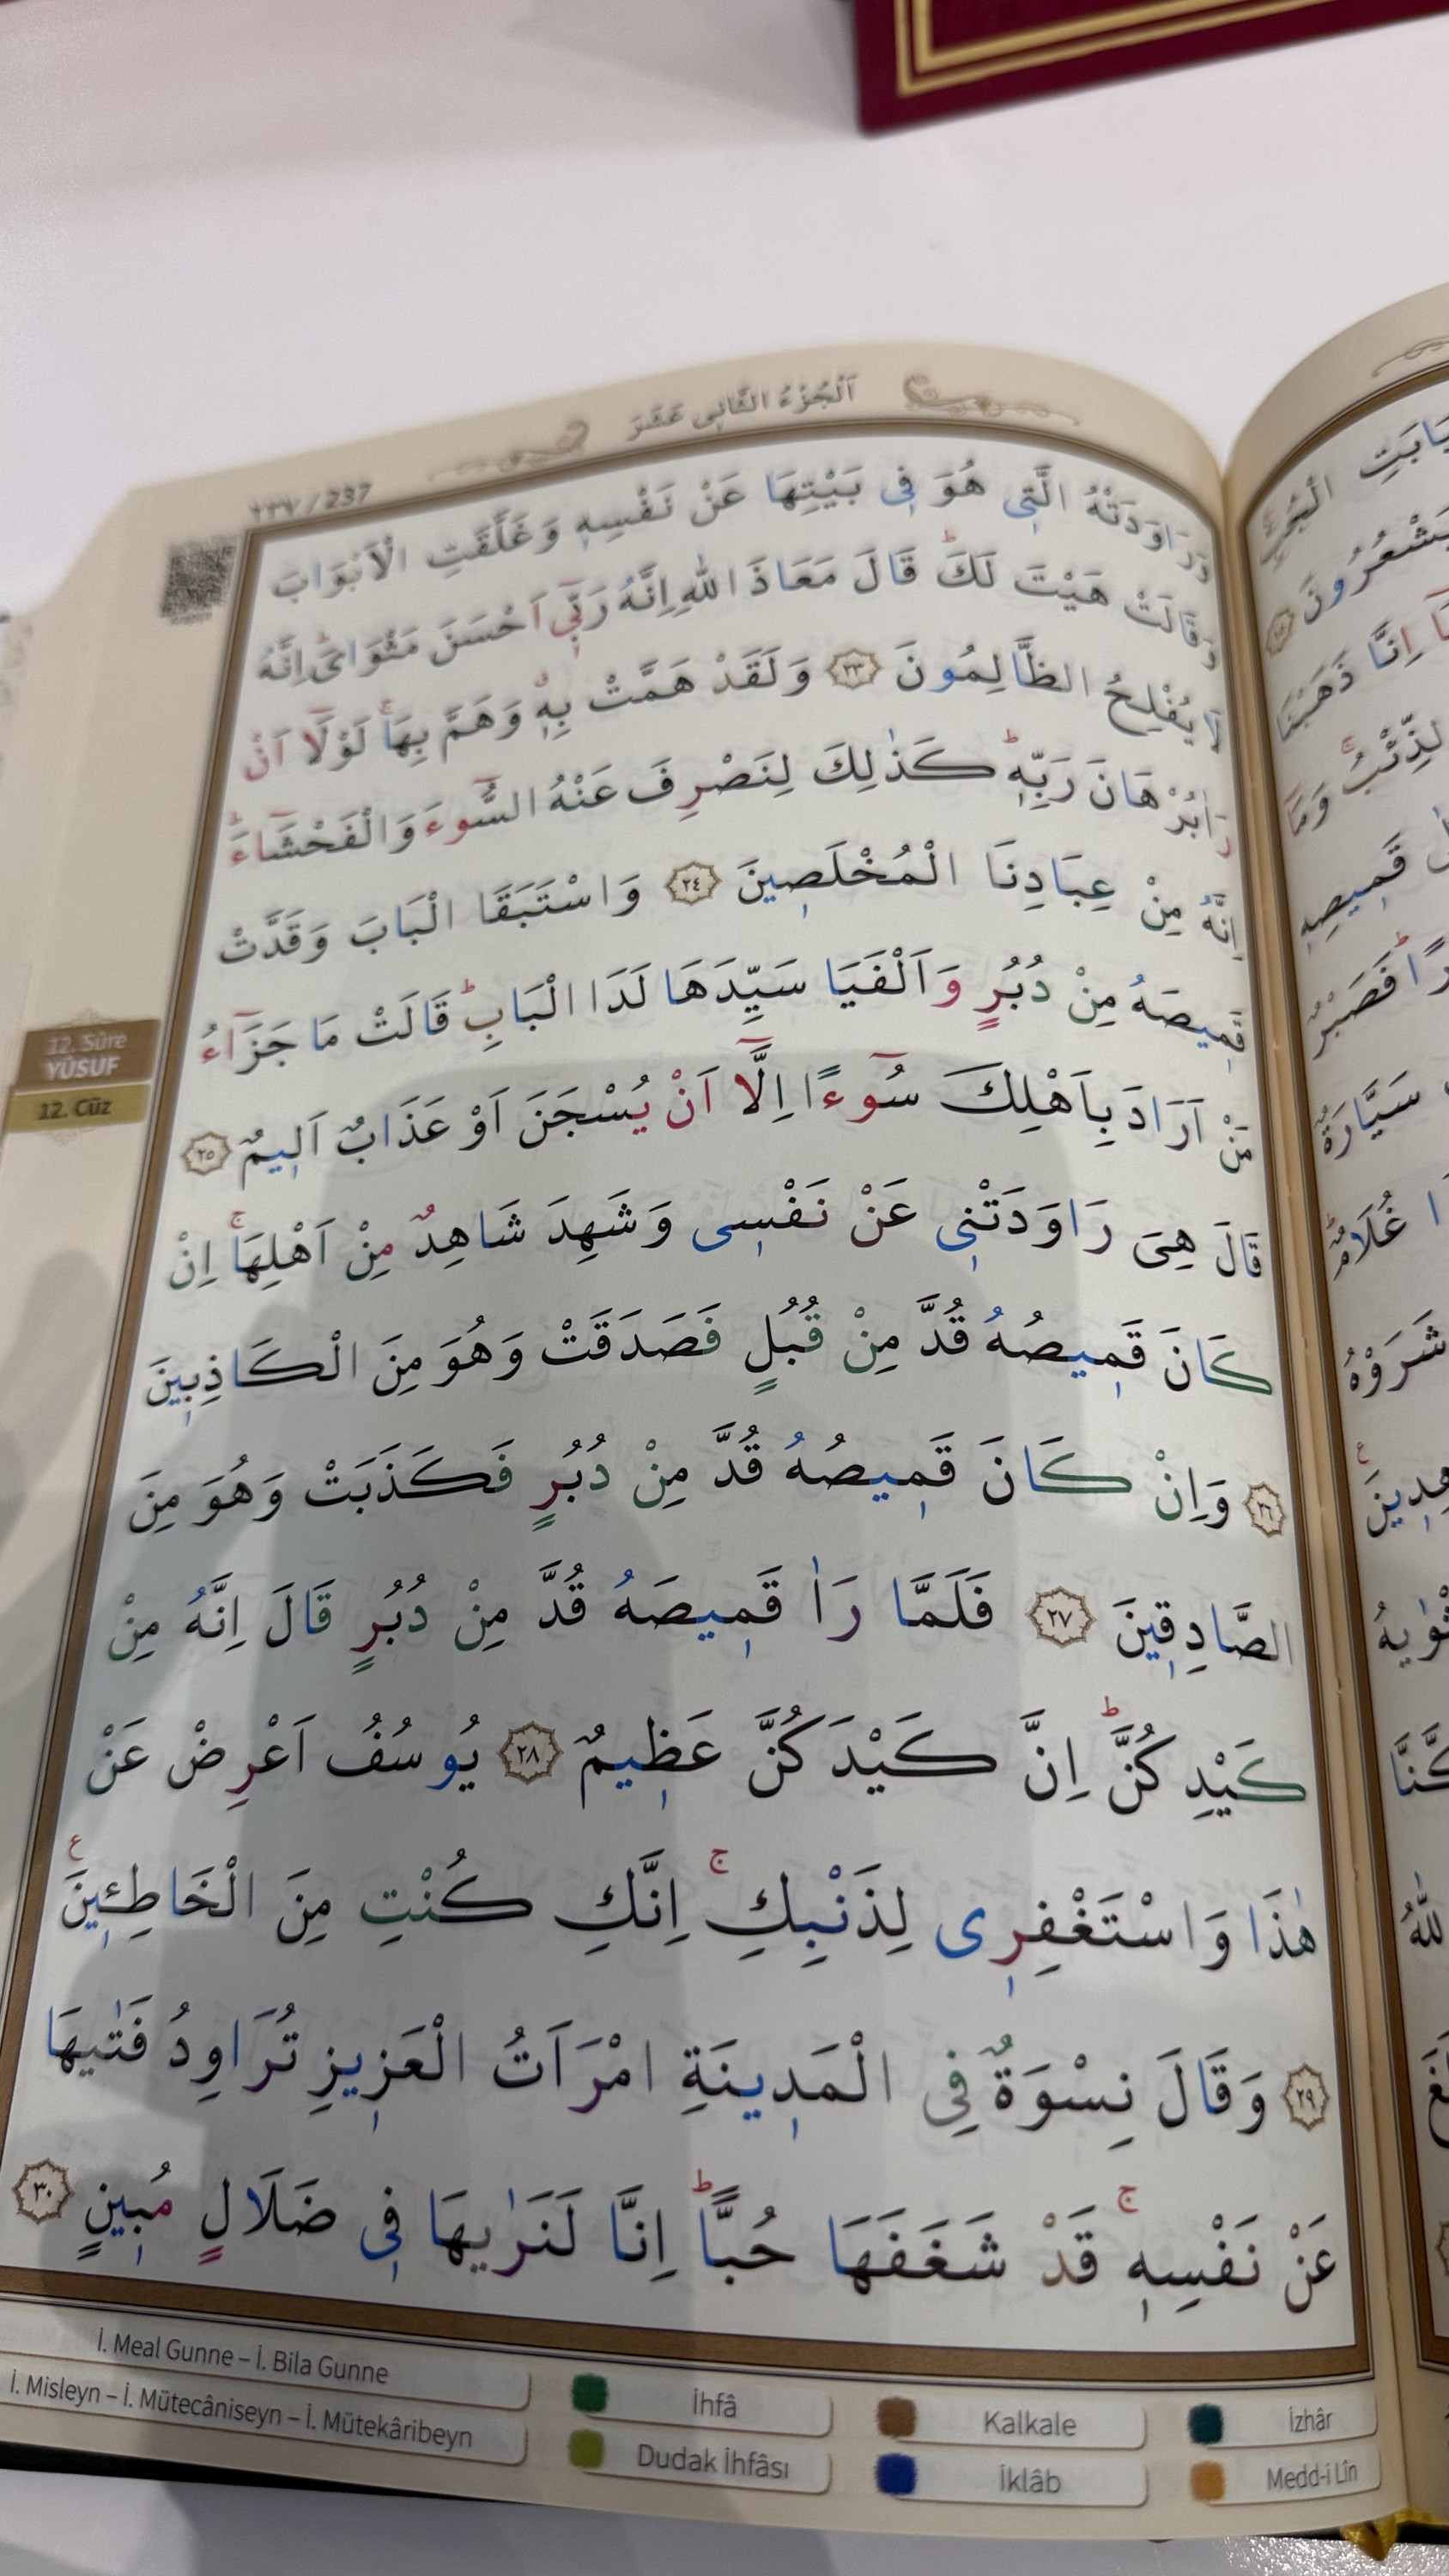 اَلْجُزْءُ الثَّانِى عَشَرَ
٢٣٧ / 237
وَرَاوَدَتْهُ الَّتِى هُوَ فِى بَيْتِهَا عَنْ نَفْسِهٖ وَغَلَّقَتِ الْاَبْوَابَ
وَقَالَتْ هَيْتَ لَكَؕ قَالَ مَعَاذَ اللّٰهِ اِنَّهُ رَبِّٓى اَحْسَنَ مَثْوَاىَؕ اِنَّهُ
لَا يُفْلِحُ الظَّالِمُونَ ﴿٢٣﴾ وَلَقَدْ هَمَّتْ بِهٖ وَهَمَّ بِهَاۚ لَوْلَٓا اَنْ
رَاٰ بُرْهَانَ رَبِّهٖؕ كَذٰلِكَ لِنَصْرِفَ عَنْهُ السُّٓوءَ وَالْفَحْشَٓاءَؕ
اِنَّهُ مِنْ عِبَادِنَا الْمُخْلَصِينَ ﴿٢٤﴾ وَاسْتَبَقَا الْبَابَ وَقَدَّتْ
قَمِيصَهُ مِنْ دُبُرٍ وَاَلْفَيَا سَيِّدَهَا لَدَا الْبَابِؕ قَالَتْ مَا جَزَٓاءُ
مَنْ اَرَادَ بِاَهْلِكَ سُٓوءًا اِلَّٓا اَنْ يُسْجَنَ اَوْ عَذَابٌ اَلِيمٌ ﴿٢٥﴾
قَالَ هِىَ رَاوَدَتْنِى عَنْ نَفْسِى وَشَهِدَ شَاهِدٌ مِنْ اَهْلِهَاۚ اِنْ
كَانَ قَمِيصُهُ قُدَّ مِنْ قُبُلٍ فَصَدَقَتْ وَهُوَ مِنَ الْكَاذِبِينَ
﴿٢٦﴾ وَاِنْ كَانَ قَمِيصُهُ قُدَّ مِنْ دُبُرٍ فَكَذَبَتْ وَهُوَ مِنَ
الصَّادِقِينَ ﴿٢٧﴾ فَلَمَّا رَاٰ قَمِيصَهُ قُدَّ مِنْ دُبُرٍ قَالَ اِنَّهُ مِنْ
كَيْدِكُنَّؕ اِنَّ كَيْدَكُنَّ عَظِيمٌ ﴿٢٨﴾ يُوسُفُ اَعْرِضْ عَنْ
هٰذَا وَاسْتَغْفِرِى لِذَنْبِكِۚ اِنَّكِ كُنْتِ مِنَ الْخَاطِئِينَ ع
﴿٢٩﴾ وَقَالَ نِسْوَةٌ فِى الْمَدِينَةِ امْرَاَتُ الْعَزِيزِ تُرَاوِدُ فَتٰيهَا
عَنْ نَفْسِهٖۚ قَدْ شَغَفَهَا حُبًّاؕ اِنَّا لَنَرٰيهَا فِى ضَلَالٍ مُبِينٍ ﴿٣٠﴾
12. Sûre
YÛSUF
12. Cüz
İ. Meal Gunne – İ. Bila Gunne
İhfâ
Kalkale
İzhâr
İ. Misleyn – İ. Mütecâniseyn – İ. Mütekâribeyn
Dudak İhfâsı
İklâb
Medd-i Lîn